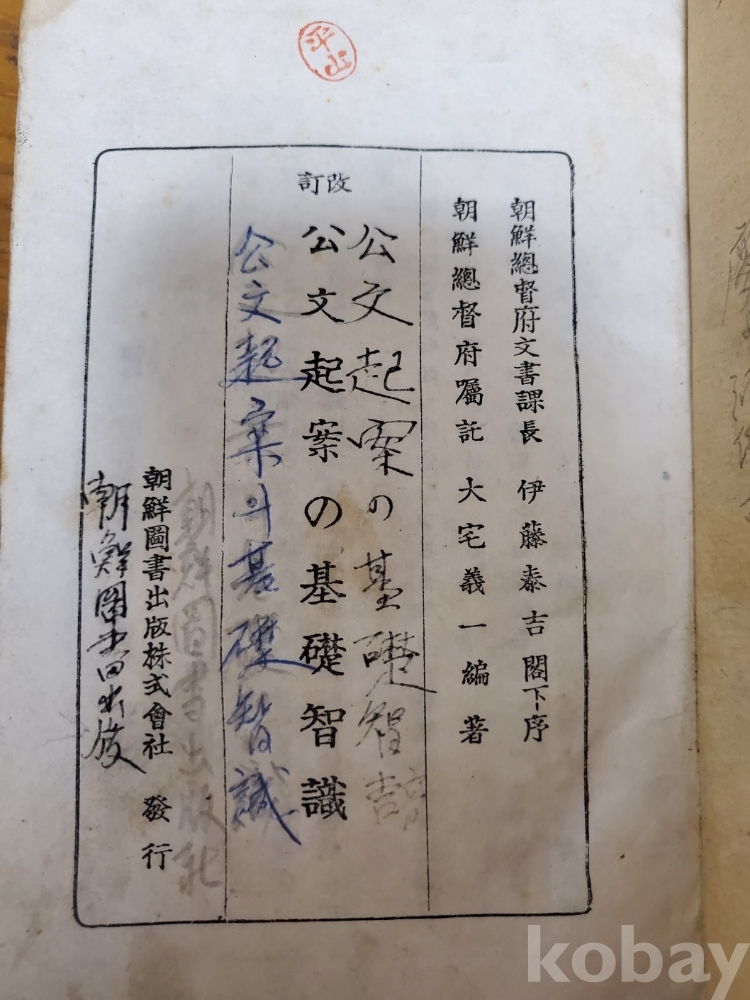 平山
朝鮮總督府文書課長 伊藤泰吉 閣下序
朝鮮總督府囑託 大宅義一編著
公文起案の基礎智
改訂
公文起案の基礎智識
公文起案의基礎智識
朝鮮圖書出版社
朝鮮圖書出版株式會社 發行
朝鮮圖書出版
kobay